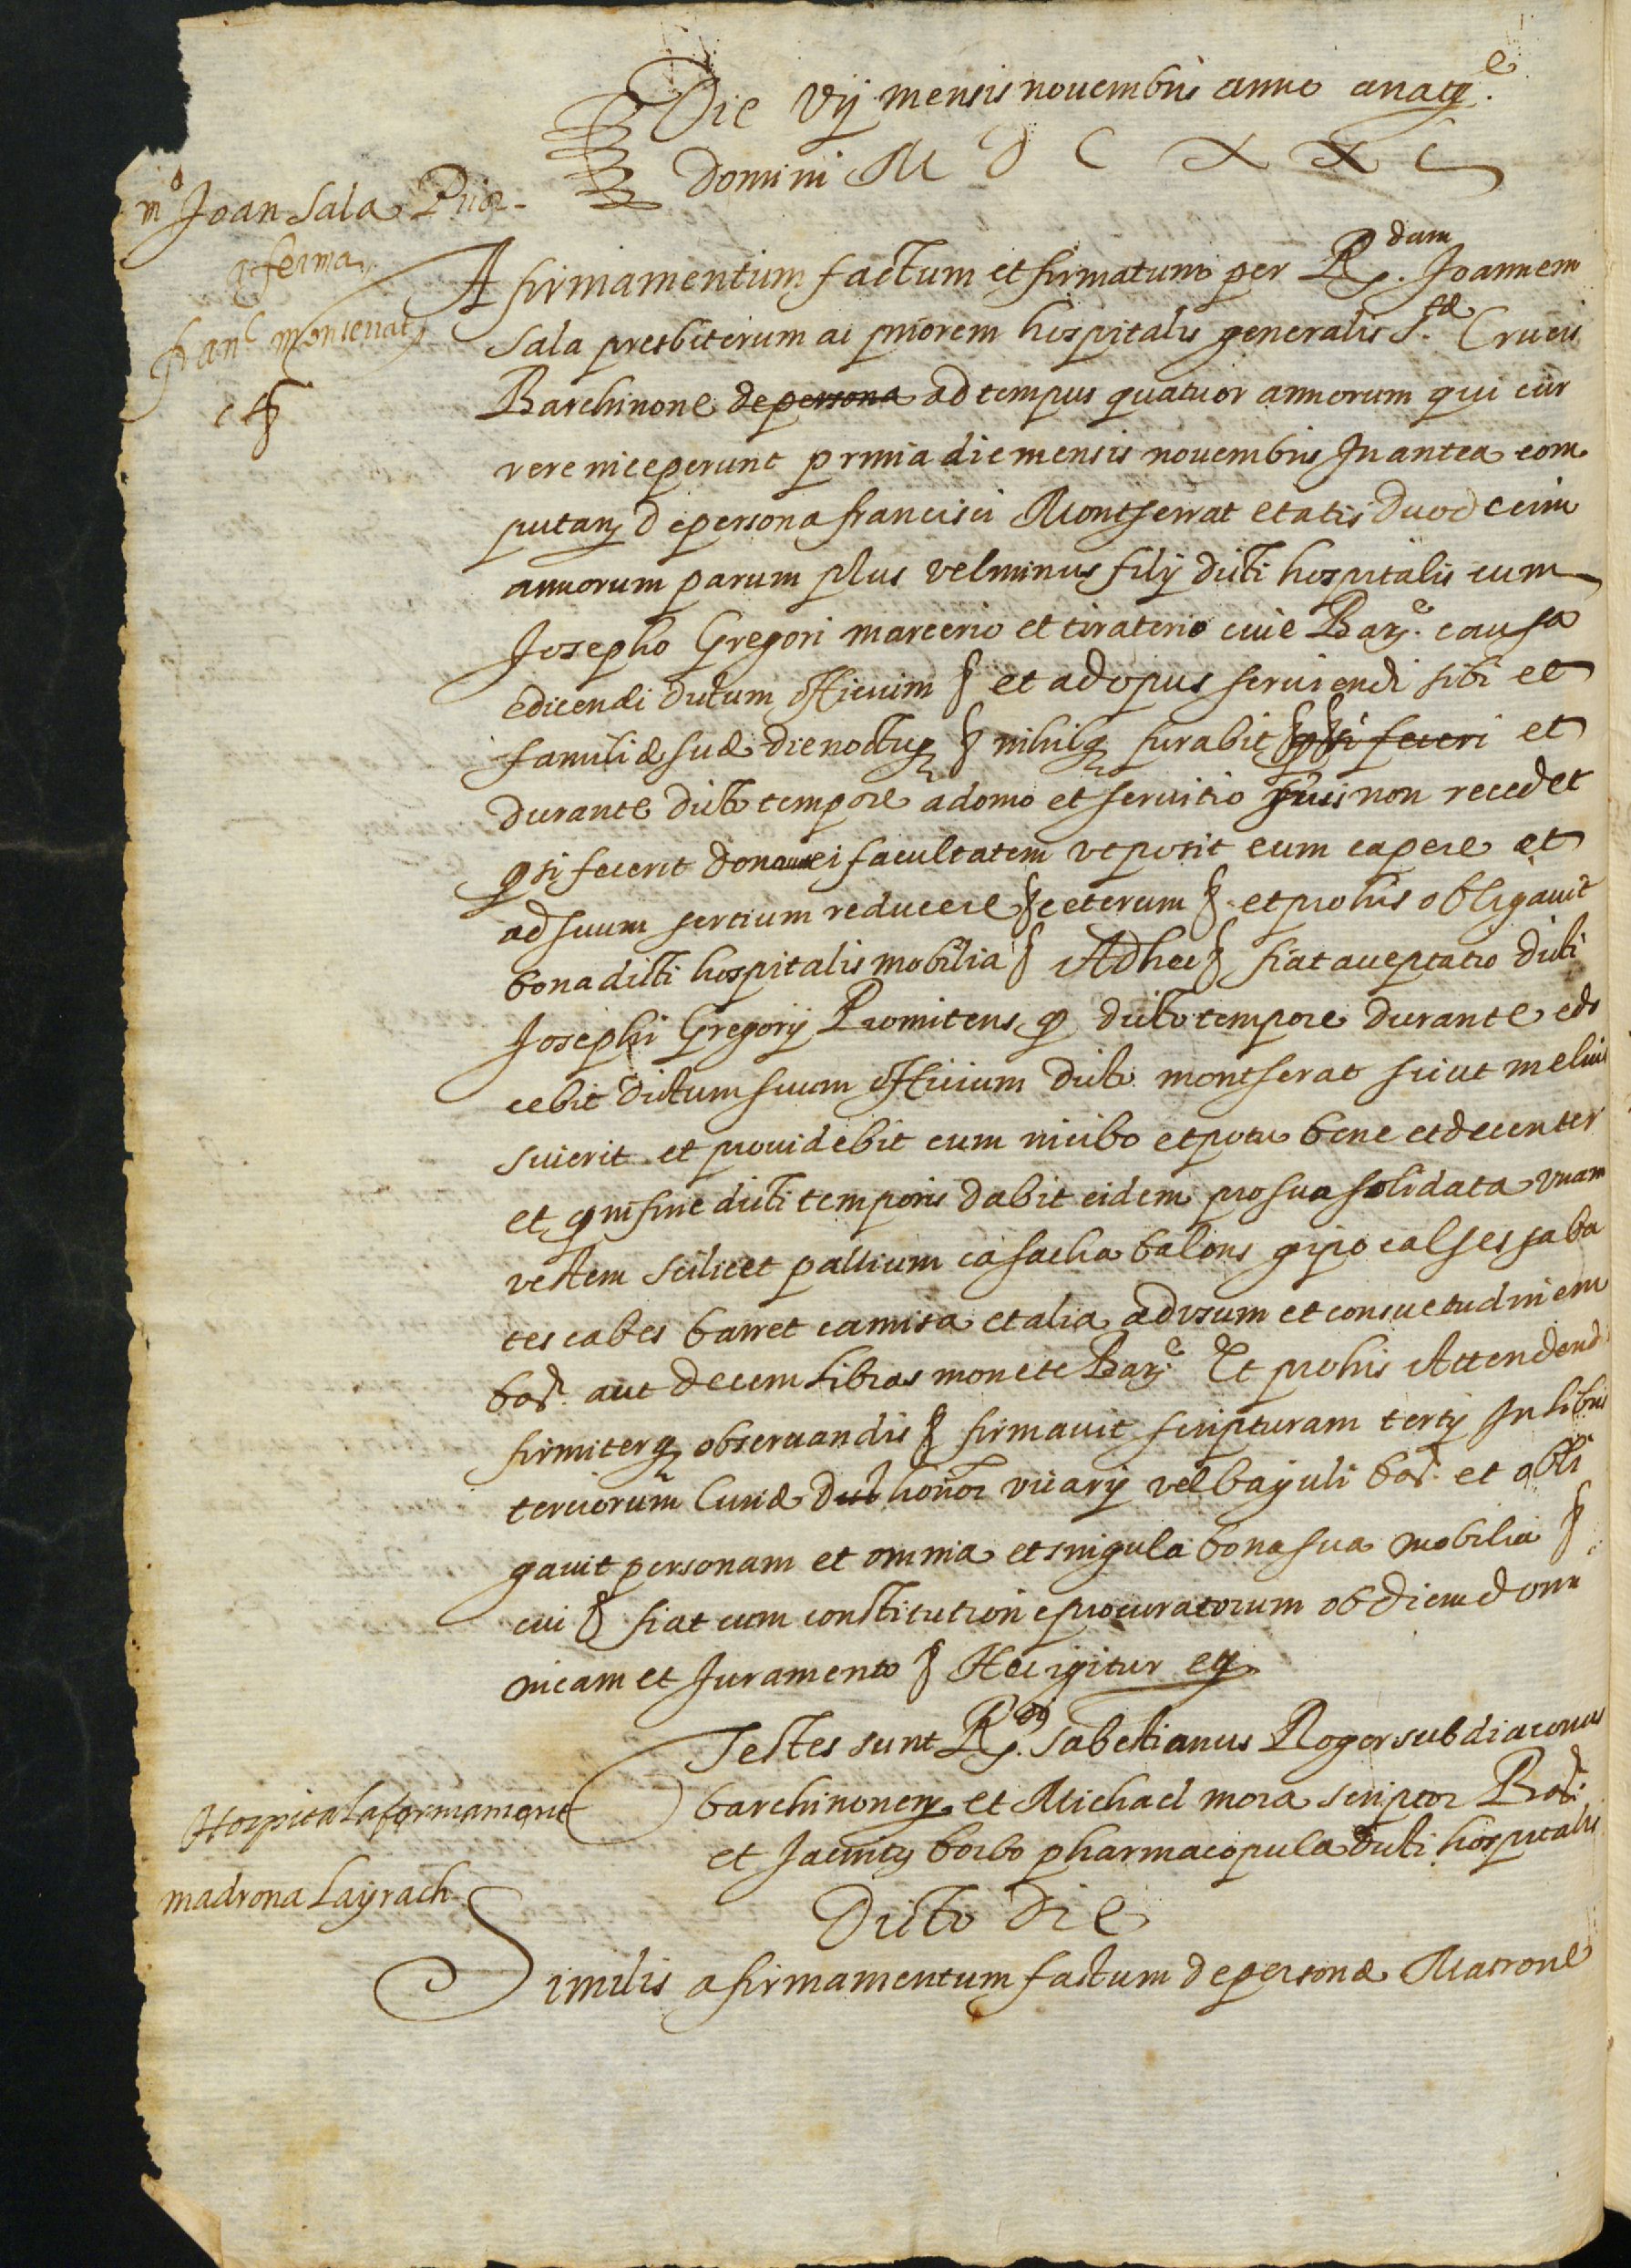 Die Vij mensis nouembris anno a natie.
Domini M D C X X
mº Joan Sala Prior
aferma
franc monserrat
etc
Afirmamentum factum et firmatum per R.dum Joannem
Sala presbiterum ac priorem hospitalis generalis S.tæ Crucis
Barchinone de persona ad tempus quatuor annorum qui cur
rere inceperunt prima die mensis nouembris In antea com
putan de persona francisci Montserrat etatis duodecim
annorum parum plus vel minus filij dicti hospitalis cum
Josepho Gregori mercerio et tiraterio ciue Bar.e causa
edicendi dictum officium § et ad opus seruiendi sibi et
familiæ suæ die noctuq § nihilq furabit § q si feceri et
durante dicto tempore a domo et seruitio suis non recedet
q si fecerit dona ei facultatem vt posit eum capere et
ad suum seruium reducere § ceterum § et pro his obligauit
bona dicti hospitalis mobilia § Ad hec § fiat acceptatio dicti
Josephi Gregorij Promitens q dicto tempore durante edo
cebit dictum suum officium dicto montserat sicut melius
sciuerit et prouidebit eum in cibo et potu bene et decenter
et q in fine dicti temporis dabit eidem pro sua solidata vnam
vestem scilicet pallium casacha balons gipo calses saba
tes cabes barret camisa et alia ad vsum et consuetudinem
bar. aut decem libras monete Bar.e Et pro his Attendend
firmiterq obseruandis § firmauit scripturam tertij In libris
terciorum Curiæ honor vicarij vel bayuli bar. et obli
gauit personam et omnia et singula bona sua mobilia §
cui § fiat cum constitutione procuratorum ob diem domi
nicam et Juramento § Hec igitur eq
Testes sunt R.dus Sabestianus Roger subdiaconus
barchinonen et Michael mora scriptor Bar.
et Jacintus borbo pharmacopula dicti hospitalis
Hospital afermament
madrona Layrach
Dicto Die
Similis afirmamentum factum de persona Matrone